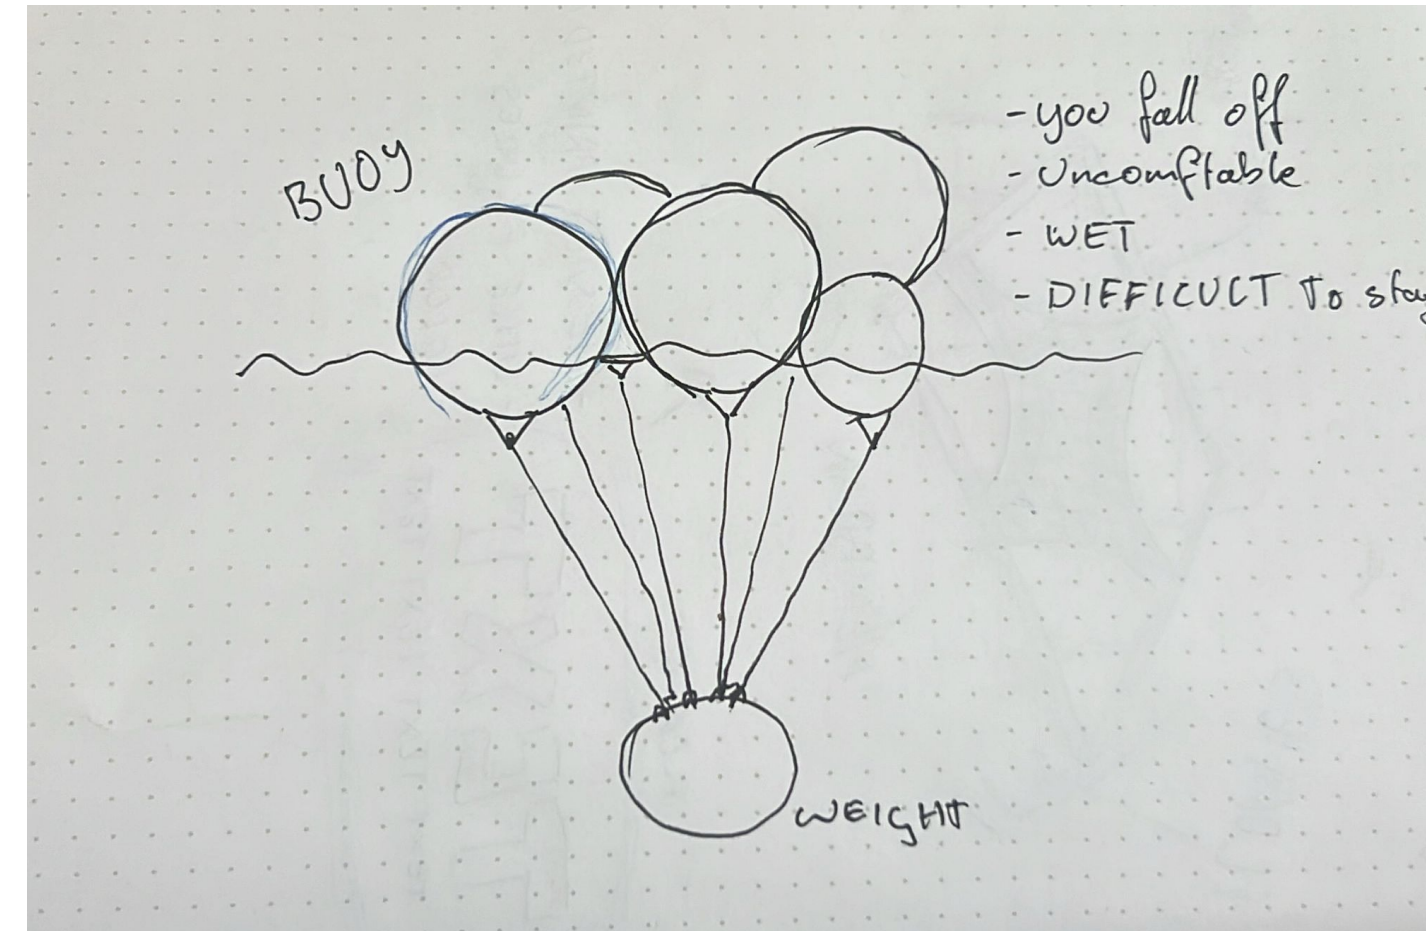 BUOY
- you fall off
- Uncomftable
- WET
- DIFFICULT To stay
WEIGHT